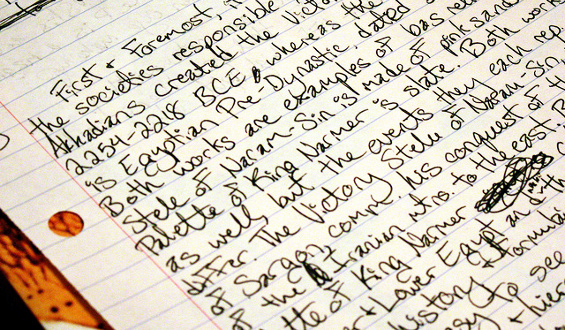 First & Foremost,
the societies responsible
Akkadians created the Victo
2254-2218 BCE, whereas the
is Egyptian Pre-Dynastic, dated
Both works are examples of bas relie
Stele of Naram-Sin is made of pink sand
Palette of King Narmer is slate. Both work
as well, but the events they each rep
differ. The Victory Stele of Naram-Sin,
of Sargon, comm. his conquest of th
of the Iranian mtns. to the east. B
tte of King Narmer
r & Lower Egypt an
history & formula
sy to see
hier